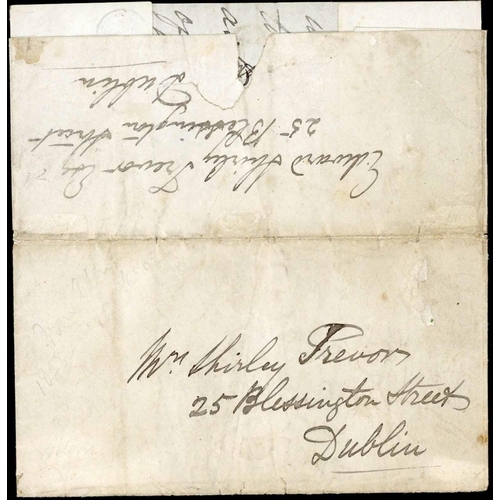 Edward Shirley Trevor Esq
25 Blessington Street
Dublin
Mrs Shirley Trevor
25 Blessington Street
Dublin